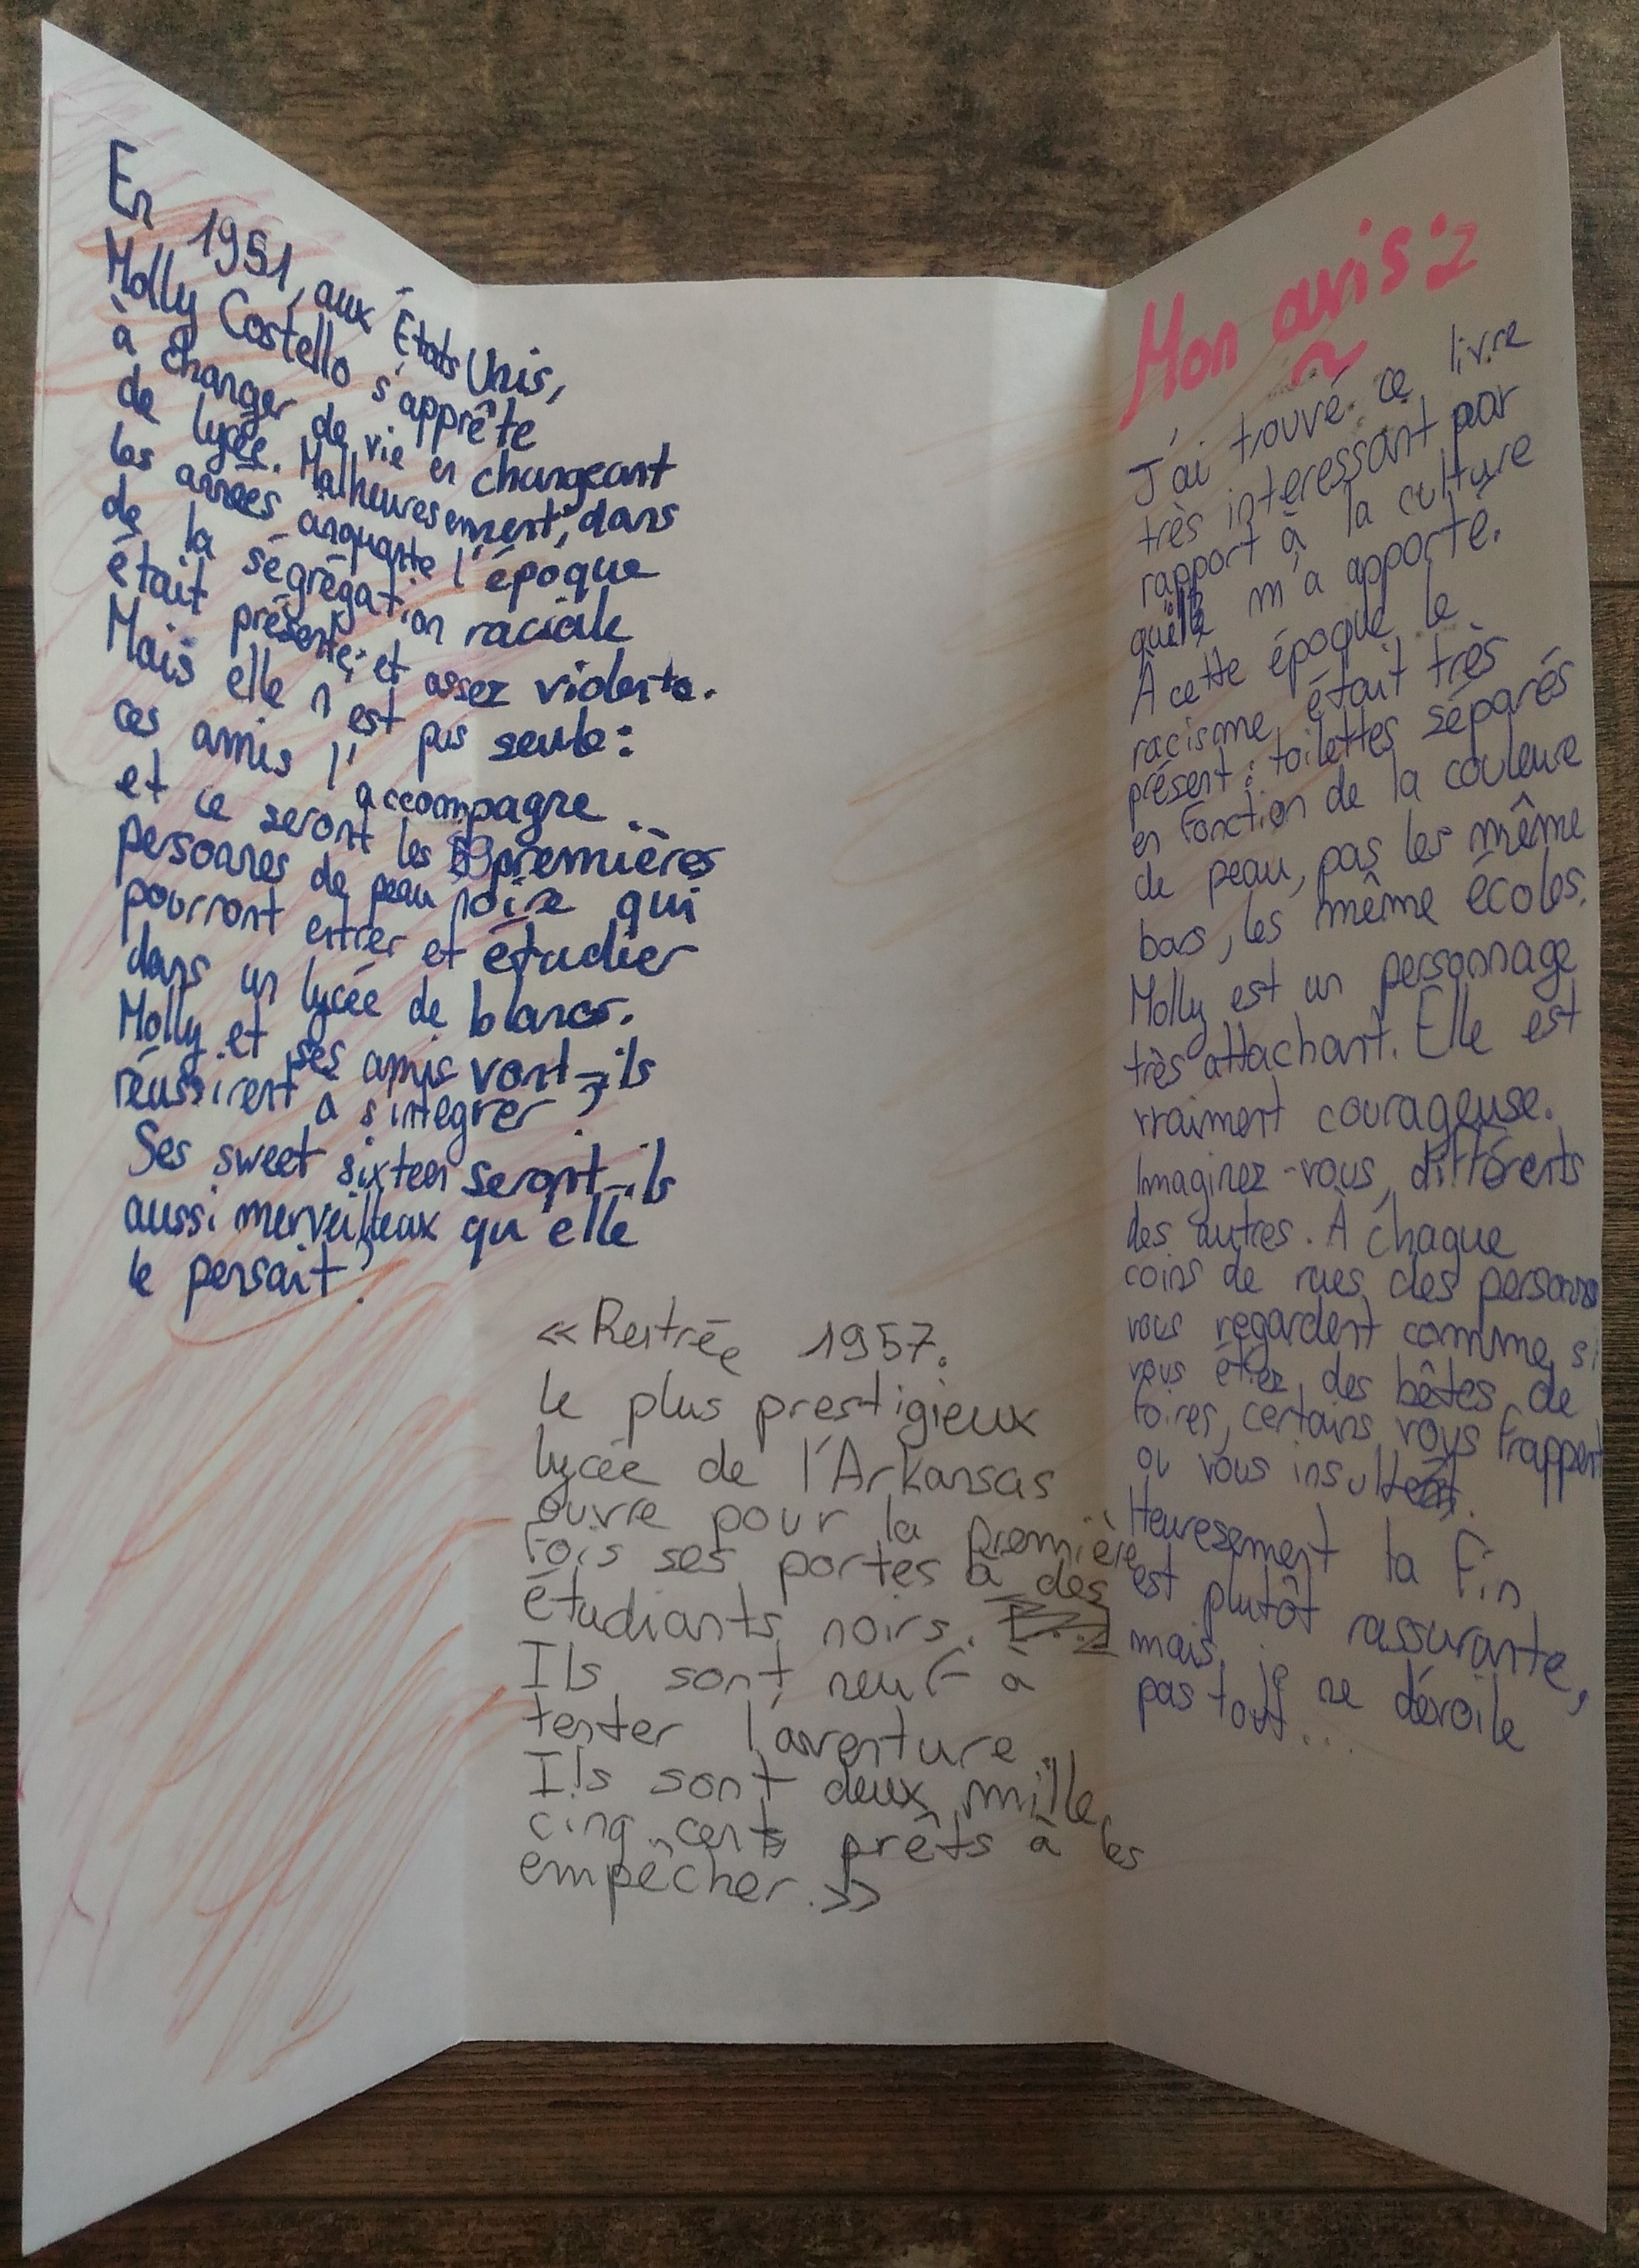 En 1951, aux États Unis,
Molly Costello s'apprête
à changer de vie en changeant
de lycée. Malheuresement, dans
les années cinquante l'époque
de la ségrégation raciale
était présente; et assez violente.
Mais elle n'est pas seule:
ces amis l'accompagne.
et ce seront les 9 premières
personnes de peau noire qui
pourront entrer et étudier
dans un lycée de blancs.
Molly et ses amis vont-ils
réussirent à s'intégrer ?
Ses sweet sixteen seront-ils
aussi merveilleux qu'elle
le pensait ?
«Rentrée 1957.
Le plus prestigieux
lycée de l'Arkansas
ouvre pour la première
fois ses portes à des
étudiants noirs.
Ils sont neuf à
tenter l'aventure.
Ils sont deux mille
cinq cents prêts à les
empêcher.»
Mon avis:
J'ai trouvé ce livre
très interessant par
rapport à la culture
qu'elle m'a apporté.
À cette époque, le
racisme était très
présent : toilettes séparés
en fonction de la couleure
de peau, pas les même
bars, les même écoles.
Molly est un personnage
très attachant. Elle est
vraiment courageuse.
Imaginez-vous, différents
des autres. À chaque
coins de rues des personnes
vous regardent comme si
vous étiez des bêtes de
foires, certains vous frappent
ou vous insultent.
Heuresement la fin
est plutôt rassurante,
mais je ne dévoile
pas tout...